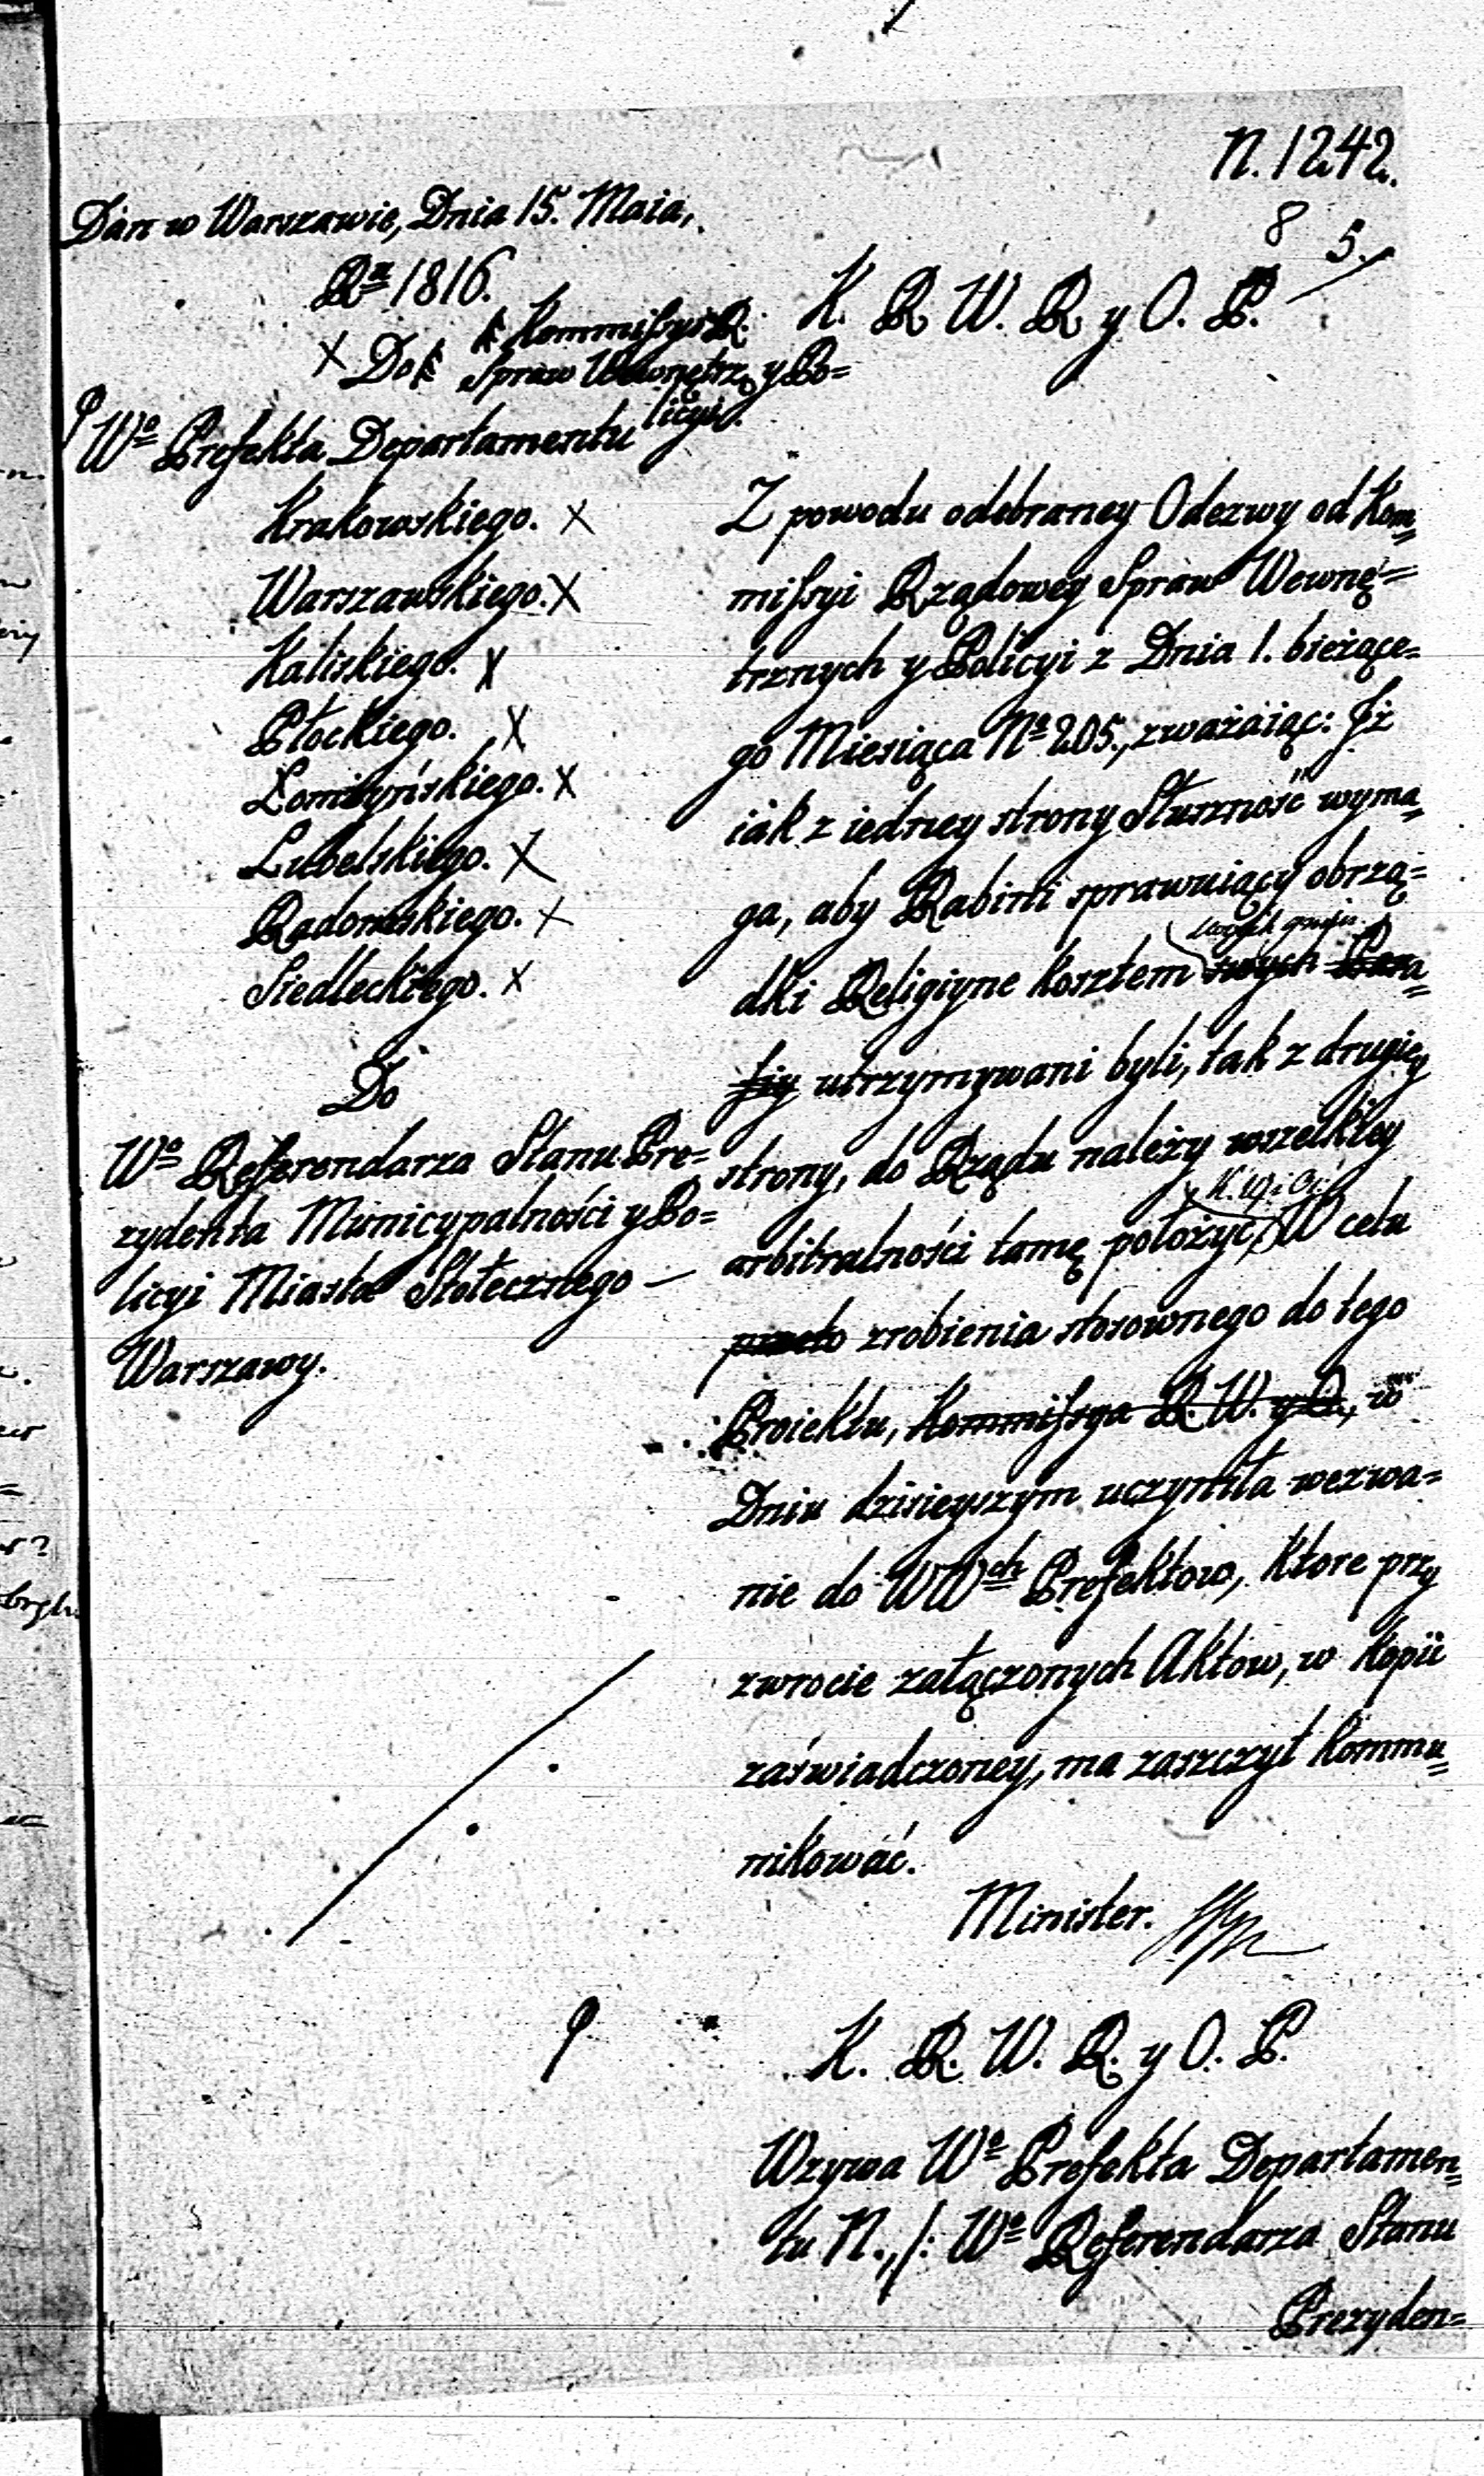 N. 1242.
8 5.
Dan w Warszawie, Dnia 15. Maia,
Ru 1816.
K. R. W. R. y O. P.
Do Kommissyi R.
Spraw Wewnętrz. y Po=
licyi.
Wo Prefekta Departamentu
Krakowskiego. X
Warszawskiego. X
Kaliskiego. X
Płockiego. X
Łomżyńskiego. X
Lubelskiego. X
Radomskiego. X
Siedleckiego. X
Do
Wo Referendarza Stanu Pre=
zydenta Municypalności y Po=
licyi Miasta Stołecznego —
Warszawy.
Z powodu odebraney Odezwy od Kom=
missyi Rządowey Spraw Wewnę=
trznych y Policyi z Dnia 1. bieżące=
go Miesiąca No 205., zważaiąc: Iż
iak z iedney strony Słuszność wyma=
ga, aby Rabini sprawuiący obrzą=
dki Religiyne kosztem swych Para=
fiy utrzymywani byli, tak z drugiey
strony, do Rządu należy wszelkiey
arbitralności tamę położyć, W celu
przeto zrobienia stosownego do tego
Proiektu, Kommissya R. W. y O., w
Dniu dzisieyszym uczyniła wezwa=
nie do WWch Prefektow, ktore przy
zwrocie załączonych Aktow, w kopii
zaświadczoney, ma zaszczyt kommu=
nikować.
Minister.
K. R. W. R. y O. P.
Wzywa Wo Prefekta Departamen=
tu N., /: Wo Referendarza Stanu
Prezyden=